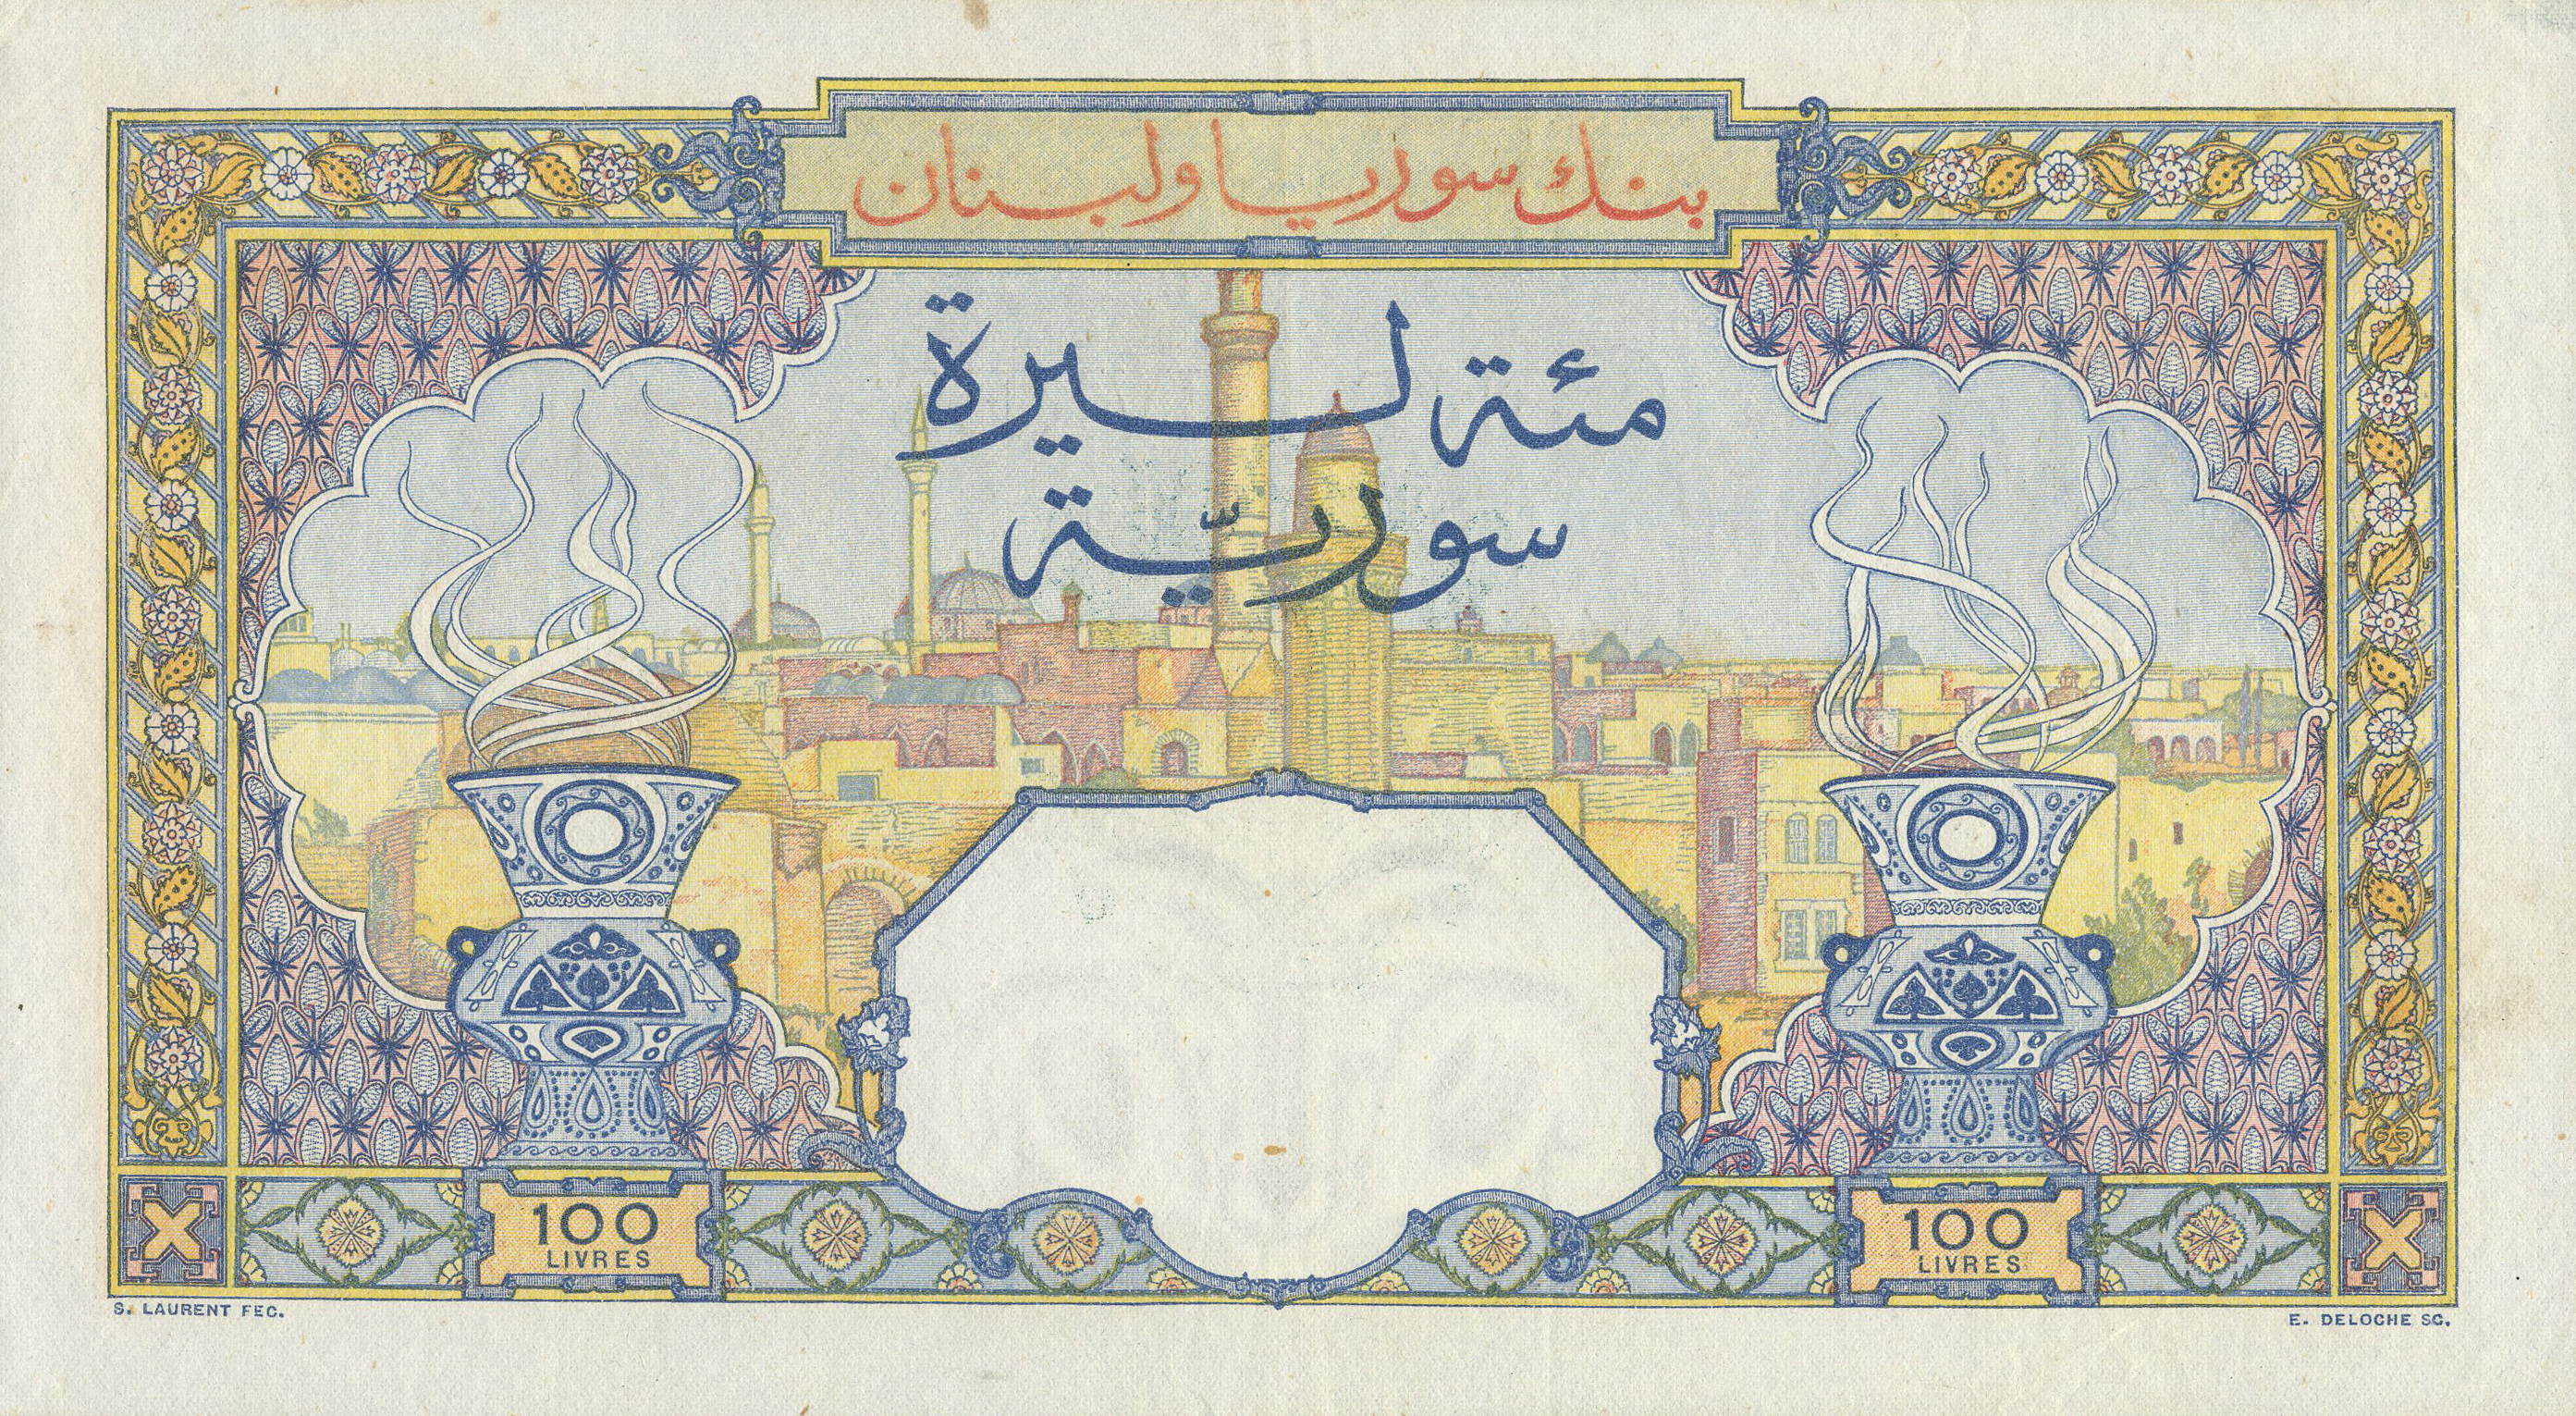 بنك سوريا ولبنان
مئة ليرة
سوريّة
100
LIVRES
100
LIVRES
S. LAURENT FEC.
E. DELOCHE SC.